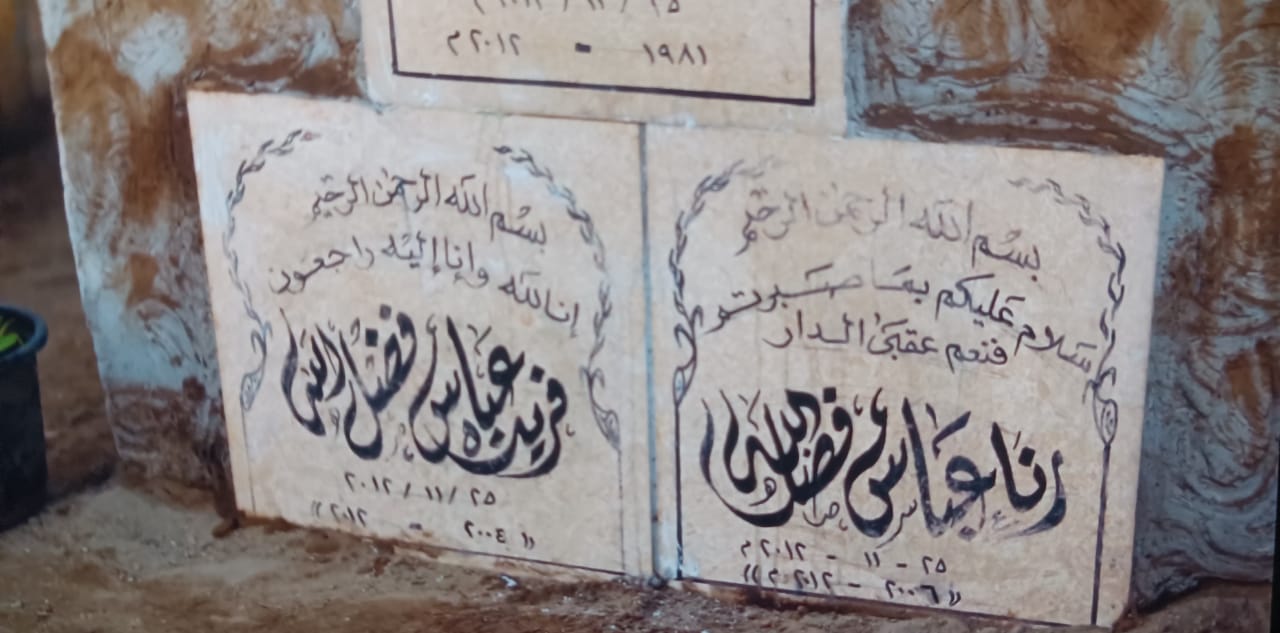 ٢٥ / ١١ / ٢٠١٢ م
١٩٨١ - ٢٠١٢ م
بسم الله الرحمن الرحيم
سلام عليكم بما صبرتو
فنعم عقبى الدار
رنا عباس فضل الله
٢٥ - ١١ - ٢٠١٢ م
(( ٢٠٠٦ - ٢٠١٢ م ))
بسم الله الرحمن الرحيم
انا لله وانا إليه راجعون
فريد عباس فضل الله
٢٥ / ١١ / ٢٠١٢
(( ٢٠٠٤ - ٢٠١٢ ))